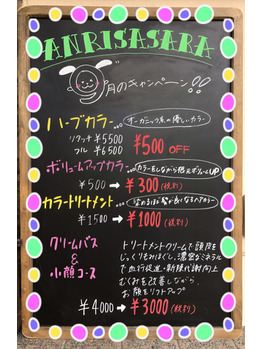 ANRISASARA
9月のキャンペーン!!
ハーブカラー…オーガニック系の優しいカラー
リタッチ ¥5500
フル ¥6500
¥500 OFF
ボリュームアップカラー…カラーをしながら根元ボリュームUP
¥500 → ¥300 (税別)
カラートリートメント…染めるほど髪が良くなるヘアカラー
¥1500 → ¥1000 (税別)
クリームバス
&
小顔コース
トリートメントクリームで頭皮を
じっくりもみほぐし、濃密なミネラル
で血行促進・新陳代謝向上
むくみを改善しながら
お顔をリフトアップ
¥4000 → ¥3000 (税別)